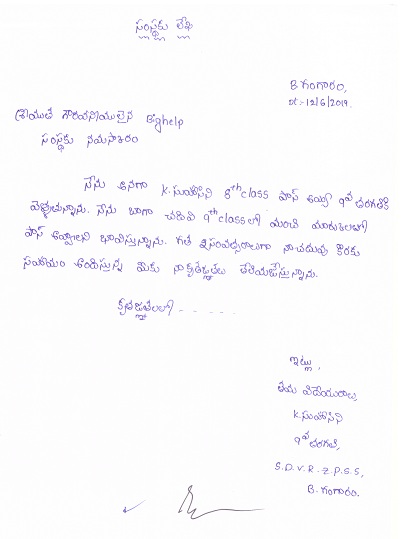 సంస్థకు లేఖ
B గంగారం,
Dt:- 12/6/2019.
శ్రీయుత గౌరవనీయులైన Bighelp
సంస్థకు నమస్కారం
నేను అనగా K.సుహాసిని 8th class పాస్ అయ్యి 9వ తరగతికి
వెళ్ళుతున్నాను. నేను బాగా చదివి 9th class లో మంచి మార్కులతో
పాస్ అవ్వాలని భావిస్తున్నాను. గత సంవత్సరాలుగా నా చదువు కొరకు
సహాయం అందిస్తున్న మీకు నా కృతజ్ఞతలు తెలియజేస్తున్నాను.
కృతజ్ఞతలతో - - - - -
ఇట్లు,
తమ విధేయురాలు,
K.సుహాసిని
9వ తరగతి,
S.D.V.R.Z.P.S.S,
B.గంగారం.